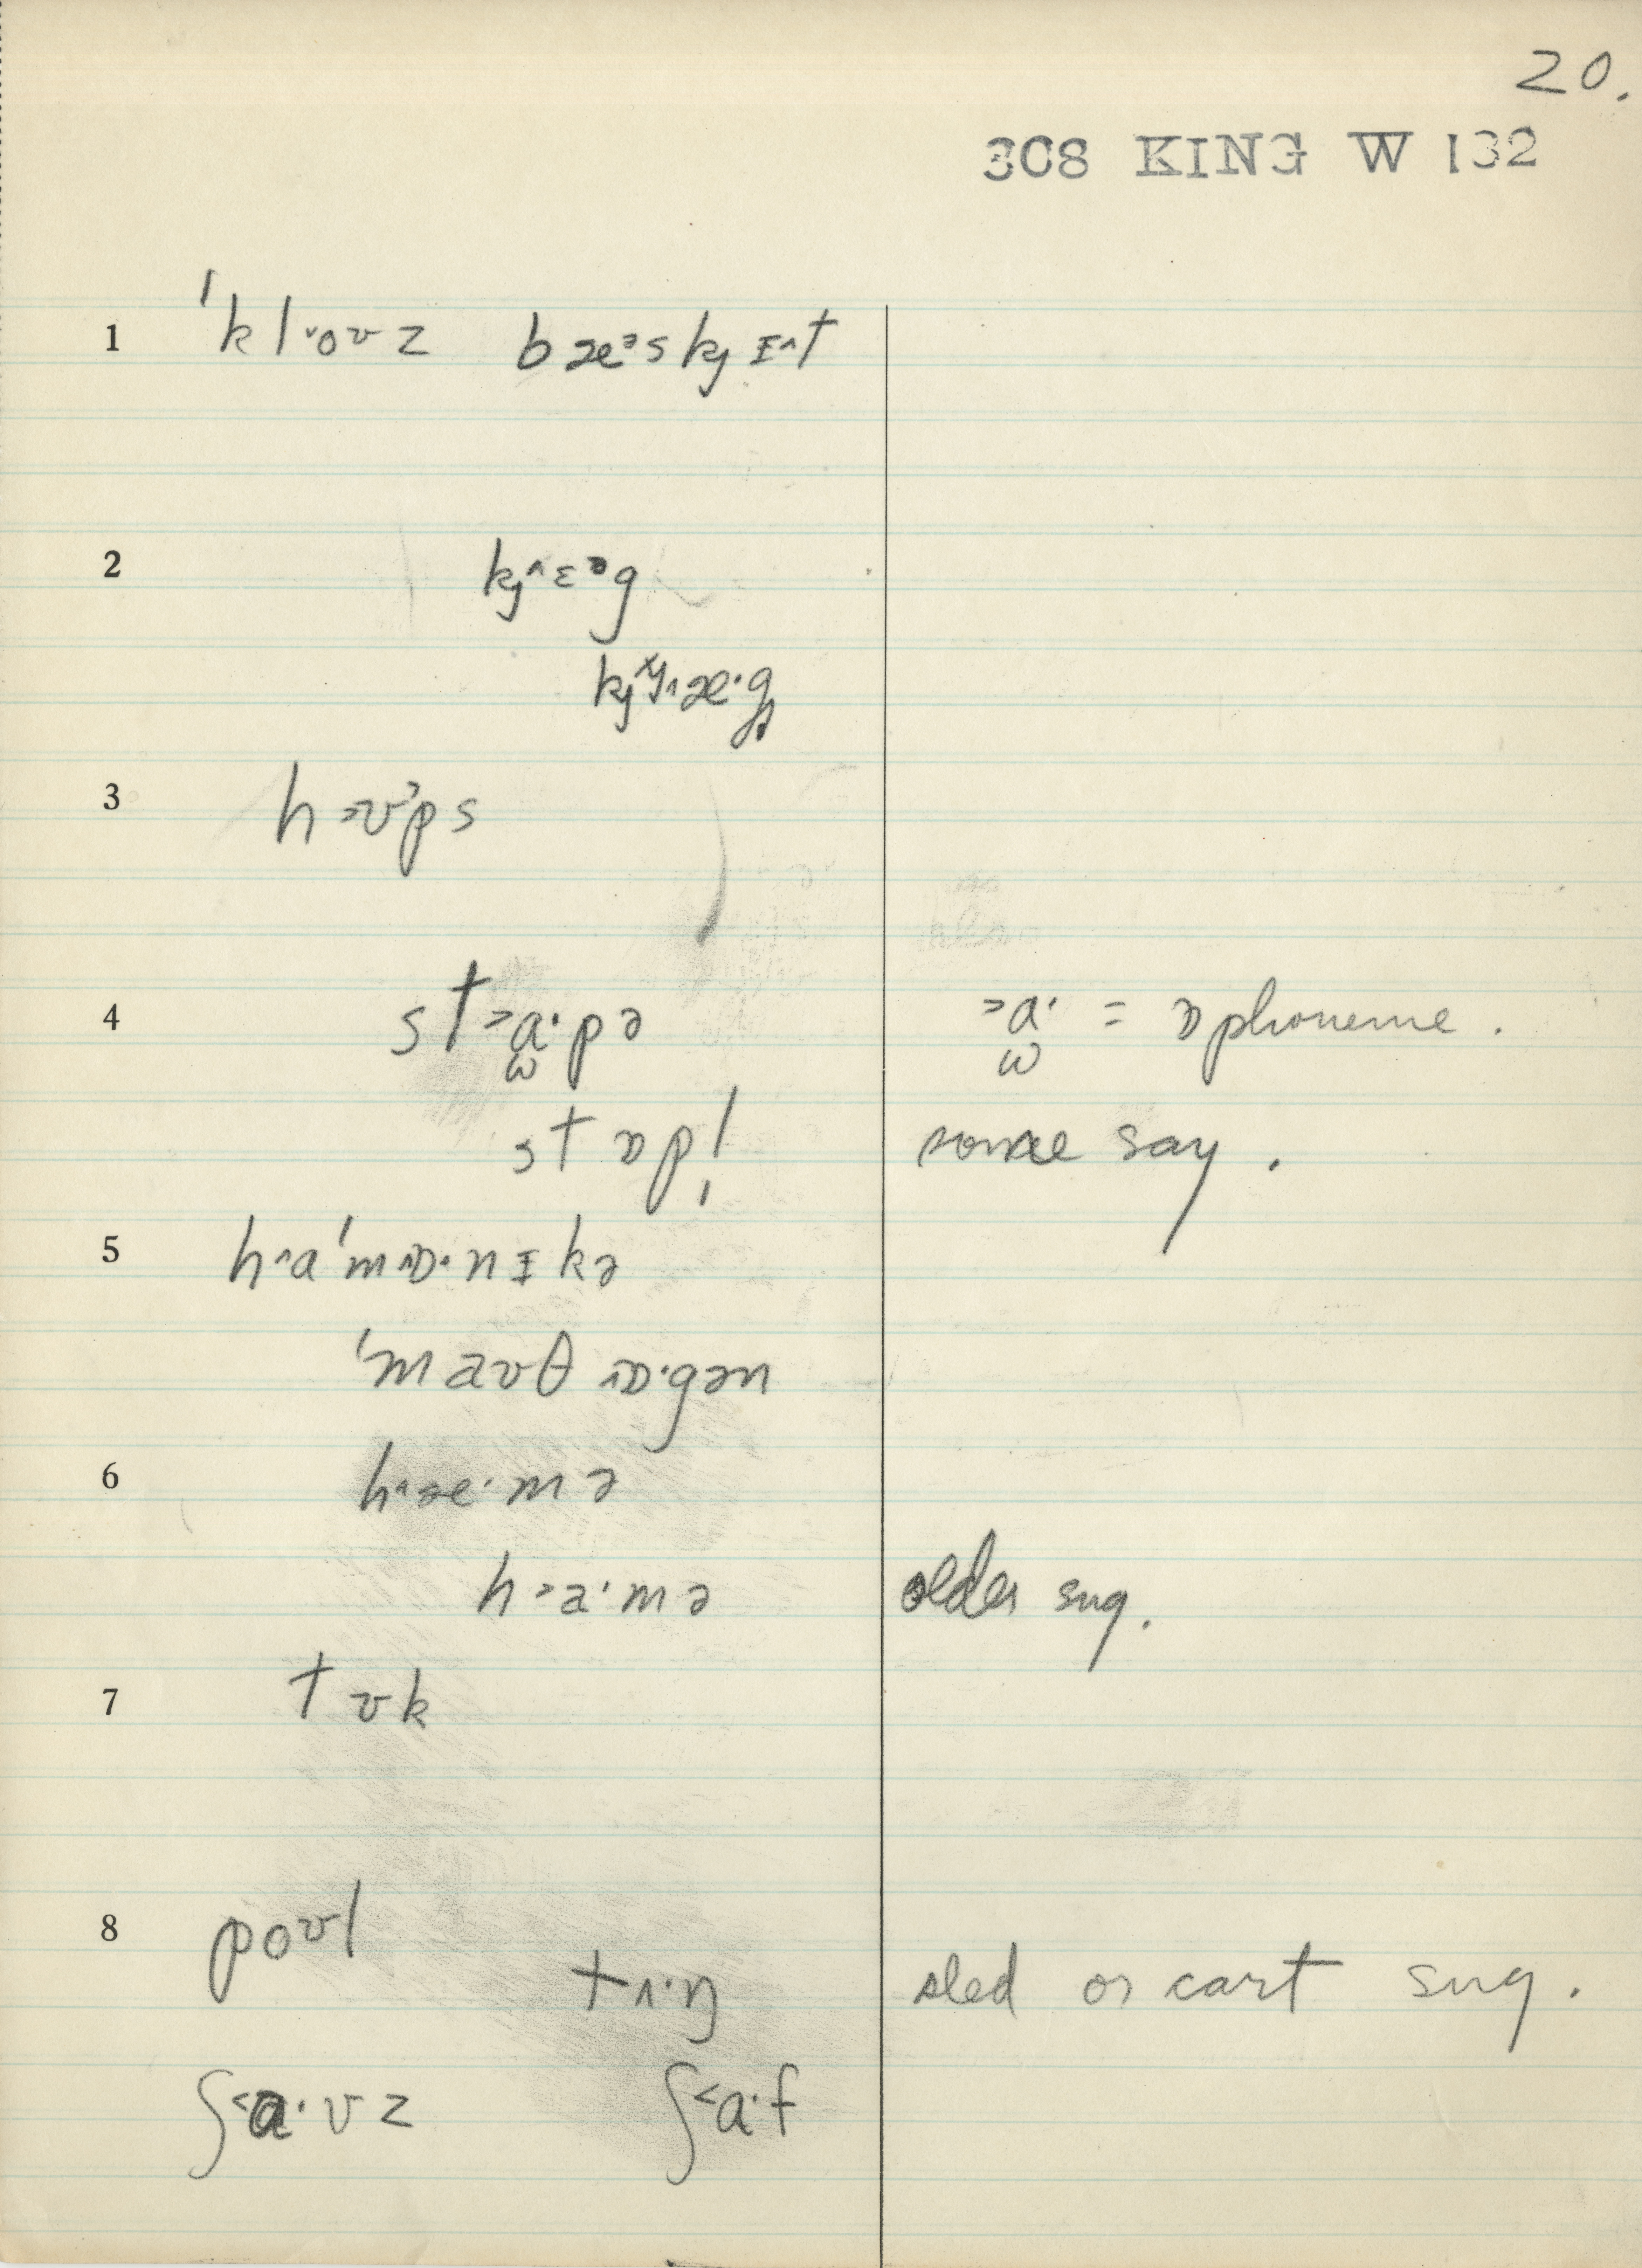 20.
308 KING W 132
1 ˈkl˅·oʊz bæᵊskȷɪ^t
2 kȷ^ɛᵊg
kȷʸ^æ·g
3 h>ʊᵊps
4 st>ɑ̫·pə >ɑ̫· = ɒ phoneme.
stɒp! some say.
5 h^aˈm^ɒ·nɪkə
ˈmaʊθ ^ɒ·gən
6 h^æ·mə
h>a·mə older sug.
7 tʊk
8 poʊl
tʌ·ŋ sled or cart sug.
ʃ<ɑ·vz ʃ<ɑ·f